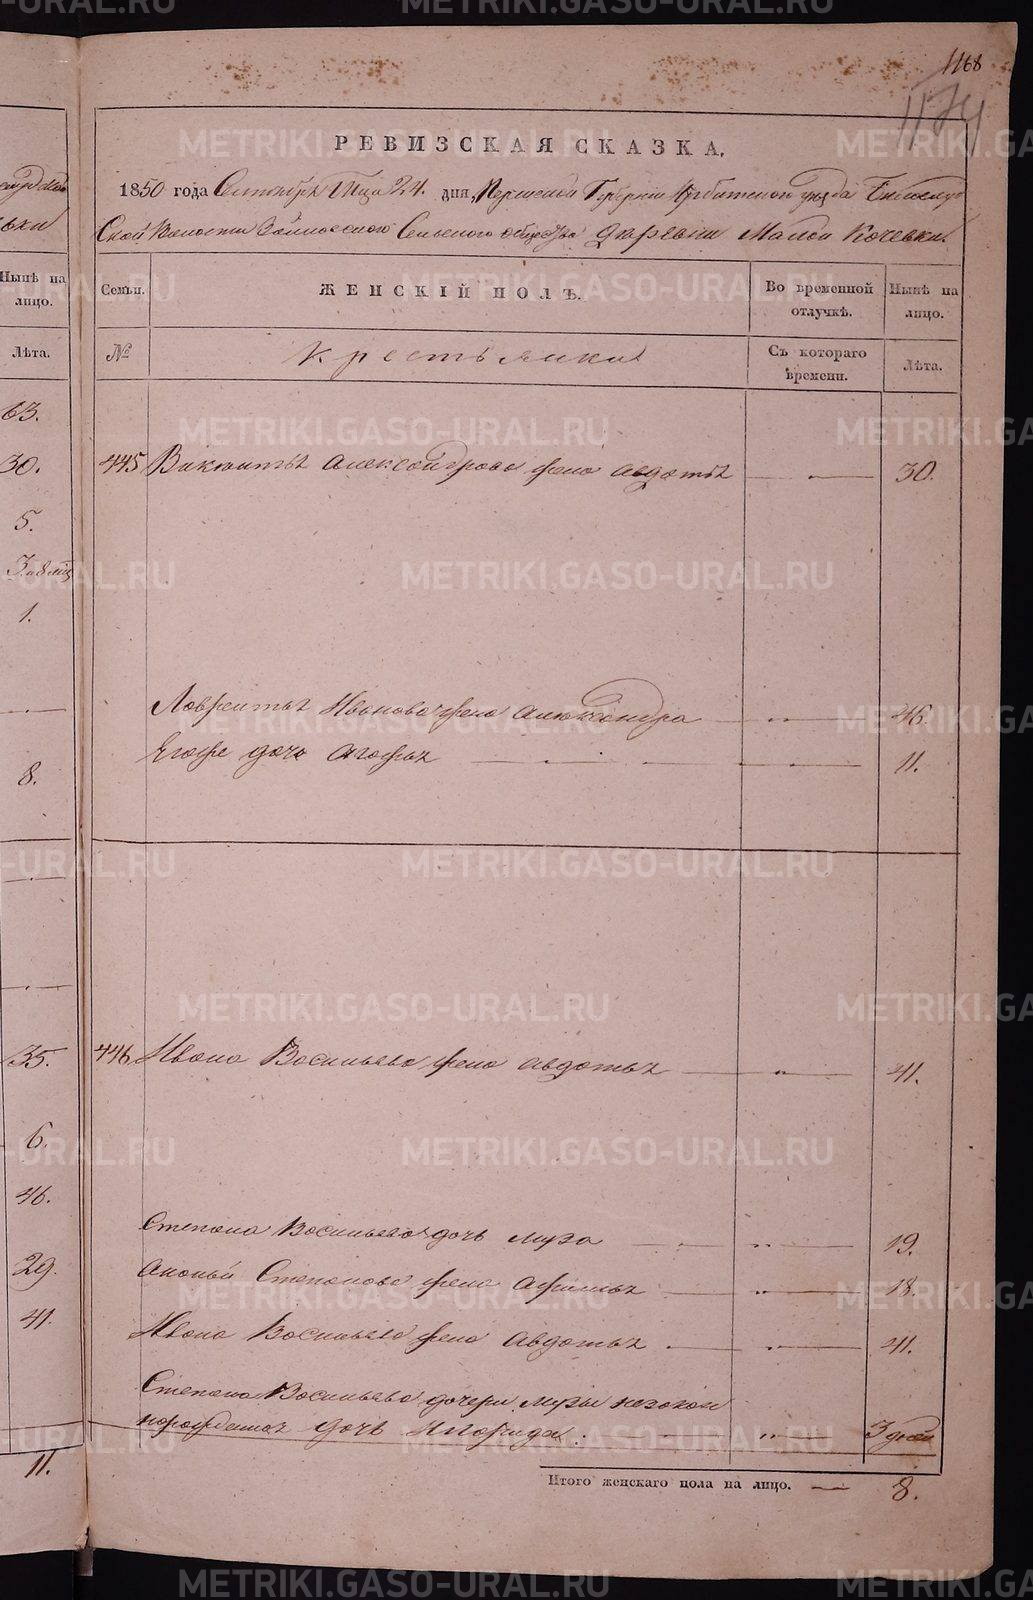 1168
1174
РЕВИЗСКАЯ СКАЗКА.
1850 года Сентября Мца 24. дня, Пермской Губернии Ирбитскаго уезда Белослуд
ской Волости Сельского общества деревни Малой Кочевки.
Нынѣ на лицо.
Семьи.
ЖЕНСКІЙ ПОЛЪ.
Во временной отлучкѣ.
Нынѣ на лицо.
Лѣта.
№
Крестьянки
Съ котораго времени.
Лѣта.
63.
30.
445 Викентья Александрова жена Авдотья — „ — 30.
5.
3. и 8 мц
1.
Лаврентья Иванова жена Александра — „ — 46.
Его же дочь Агафья — 11.
8.
35.
446 Ивана Васильева жена Авдотья — „ — 41.
6.
46.
Степана Васильева дочь Муза — „ — 19.
29.
Ананьи Степанова жена Афимья — „ — 18.
41.
Ивана Васильева жена Авдотья — „ — 41.
Степана Васильева дочери Музы незакон
норожденная дочь — „ — 3 дней
11.
Итого женскаго пола на лицо. — 8.
METRIKI.GASO-URAL.RU